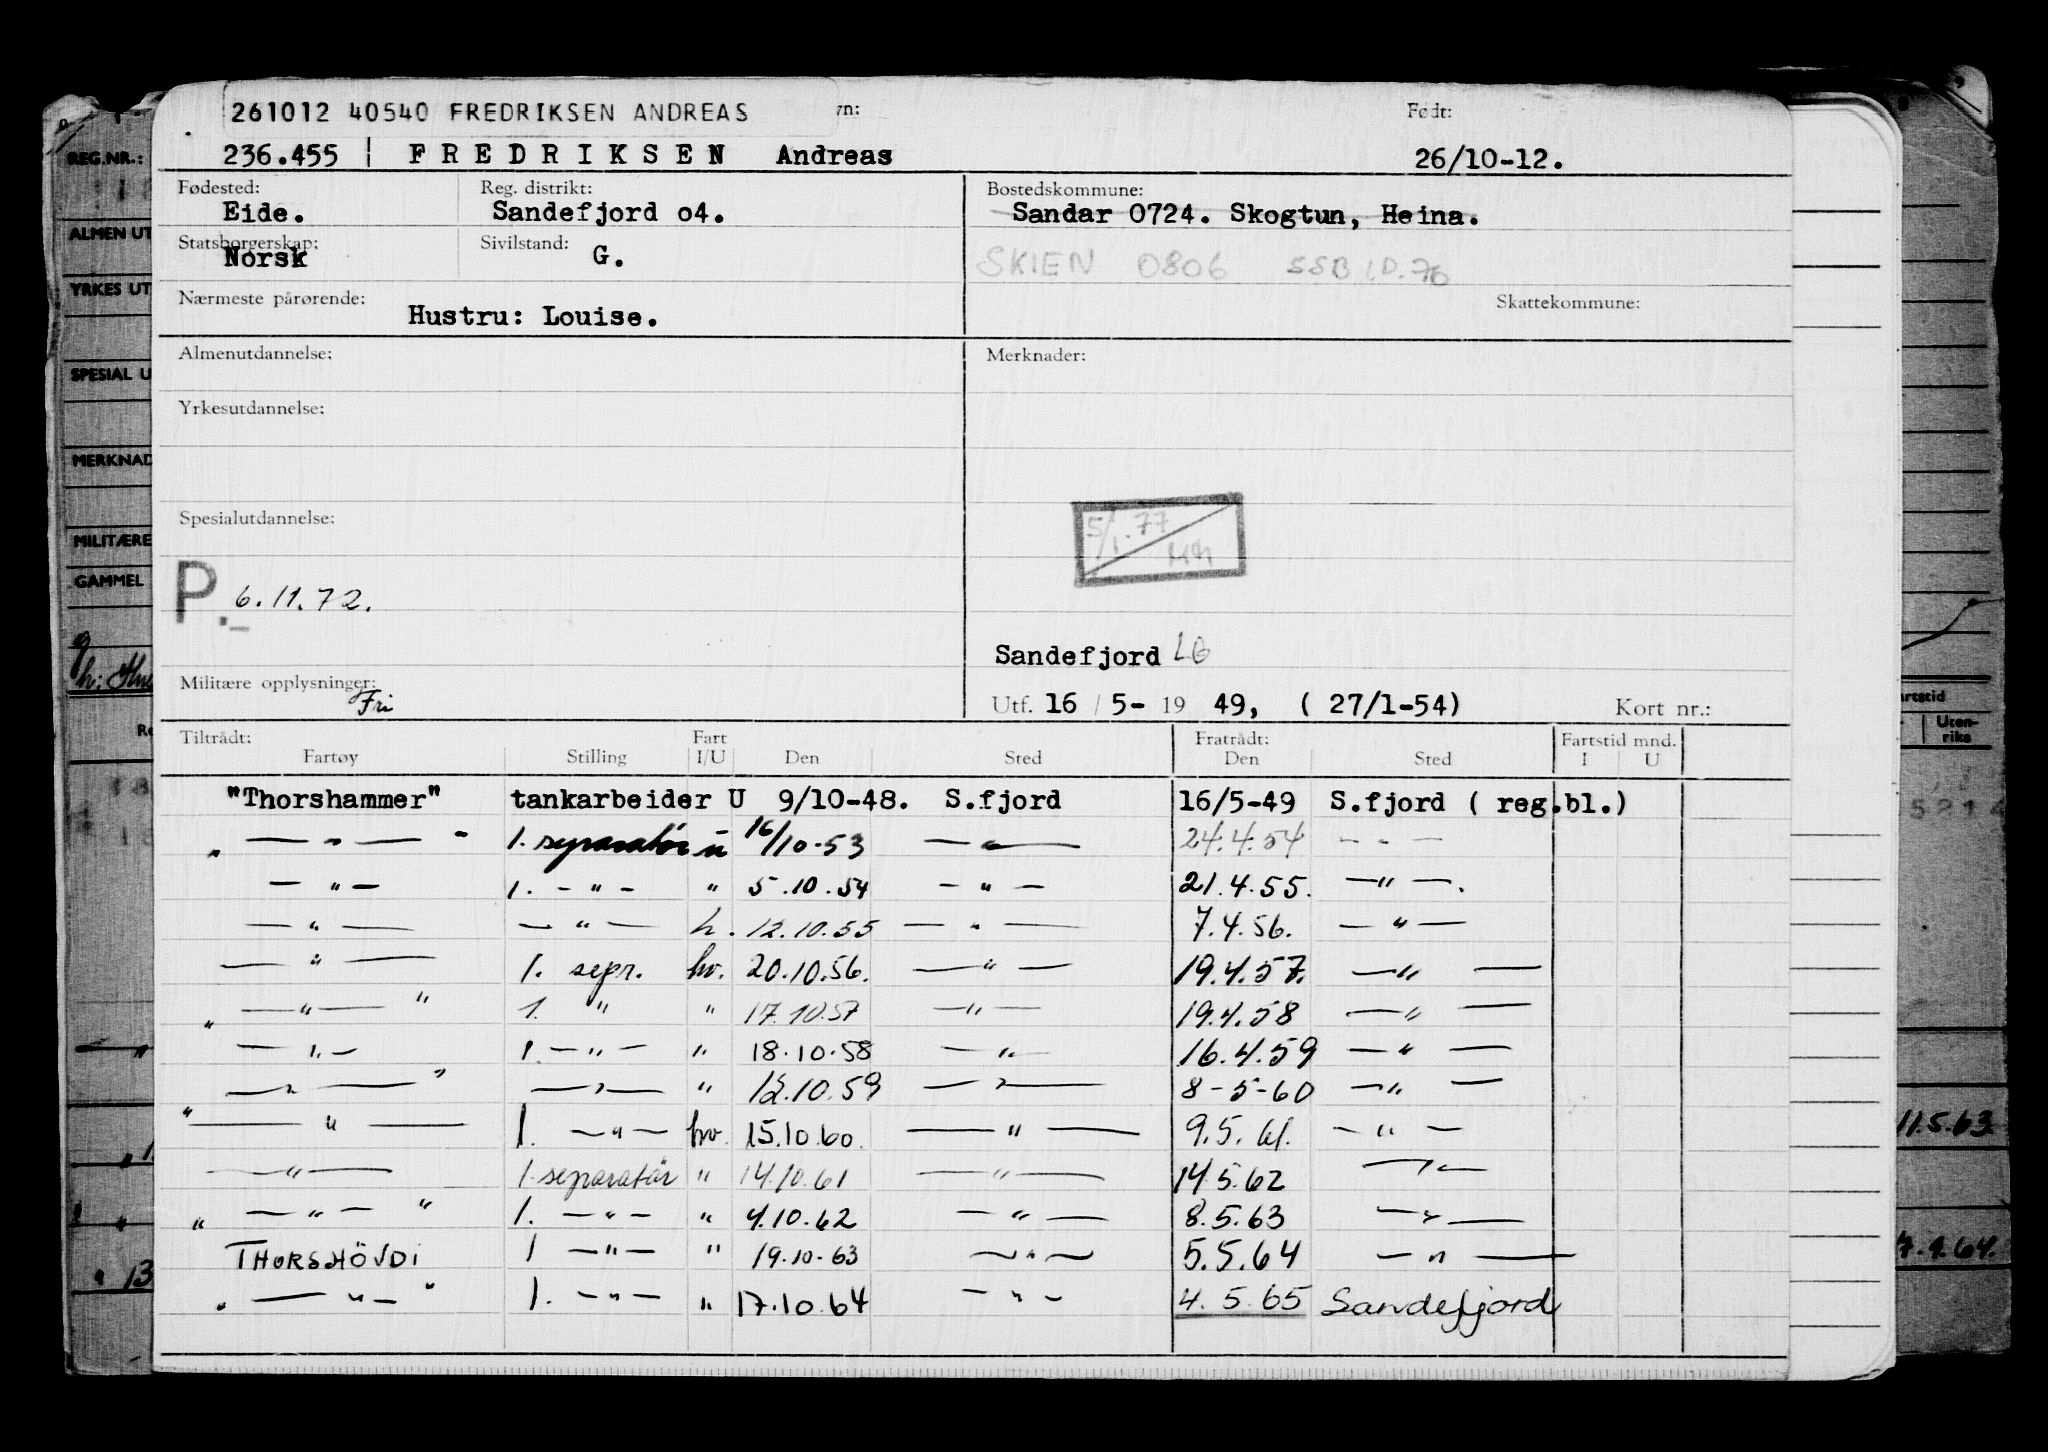 261012 40540 FREDRIKSEN ANDREAS vn: Født:
236.455 | FREDRIKSEN Andreas 26/10-12.
Fødested: Reg. distrikt: Bostedskommune:
Eide. Sandefjord o4. Sandar 0724. Skogtun, Heina.
Statsborgerskap: Sivilstand:
Norsk G. SKIEN 0806 SSB 1.D.70
Nærmeste pårørende: Skattekommune:
Hustru: Louise.
Almenutdannelse: Merknader:
Yrkesutdannelse:
Spesialutdannelse:
5/1.77
P. 6.11.72.
Sandefjord LG
Militære opplysninger:
Fri Utf. 16 / 5- 19 49, ( 27/1-54) Kort nr.:
Tiltrådt: Fart Fratrådt: Fartstid mnd.
Fartøy Stilling I/U Den Sted Den Sted I U
"Thorshammer" tankarbeider U 9/10-48. S.fjord 16/5-49 S.fjord ( reg.bl.)
„ — " — " 1. separatör u 16/10-53 — " — 24.4.54 - " -
— " — 1. — " — " 5.10.54 — " — 21.4.55. — " —.
— " — — " — h. 12.10.55 — " — 7.4.56. — " —
— " — 1. sepr. hv. 20.10.56. — " — 19.4.57. — " —
„ — " — " 1. " " 17.10.57 — " — 19.4.58 — " —
— " — 1. — " — " 18.10.58 — " — 16.4.59 — " —
— " — " — " — " 12.10.59 — " — 8-5-60 — " —
" — " — 1. — " — hv. 15.10.60. — " — 9.5.61. — " —
— " — 1. separatör " 14.10.61 — " — 14.5.62 — " —
„ — " — " 1. — " — " 4.10.62 — " — 8.5.63 — " —
THORSHÖVDI 1 — " — " 19.10.63 — " — 5.5.64 — " —
„ — " — " 1. — " — " 17.10.64 — " — 4.5.65 Sandefjord
REG.NR.:
ALMEN UT
YRKES UT
SPESIAL U
MERKNAD
MILITÆRE
GAMMEL
artstid
Uten-
riks
11.5.63